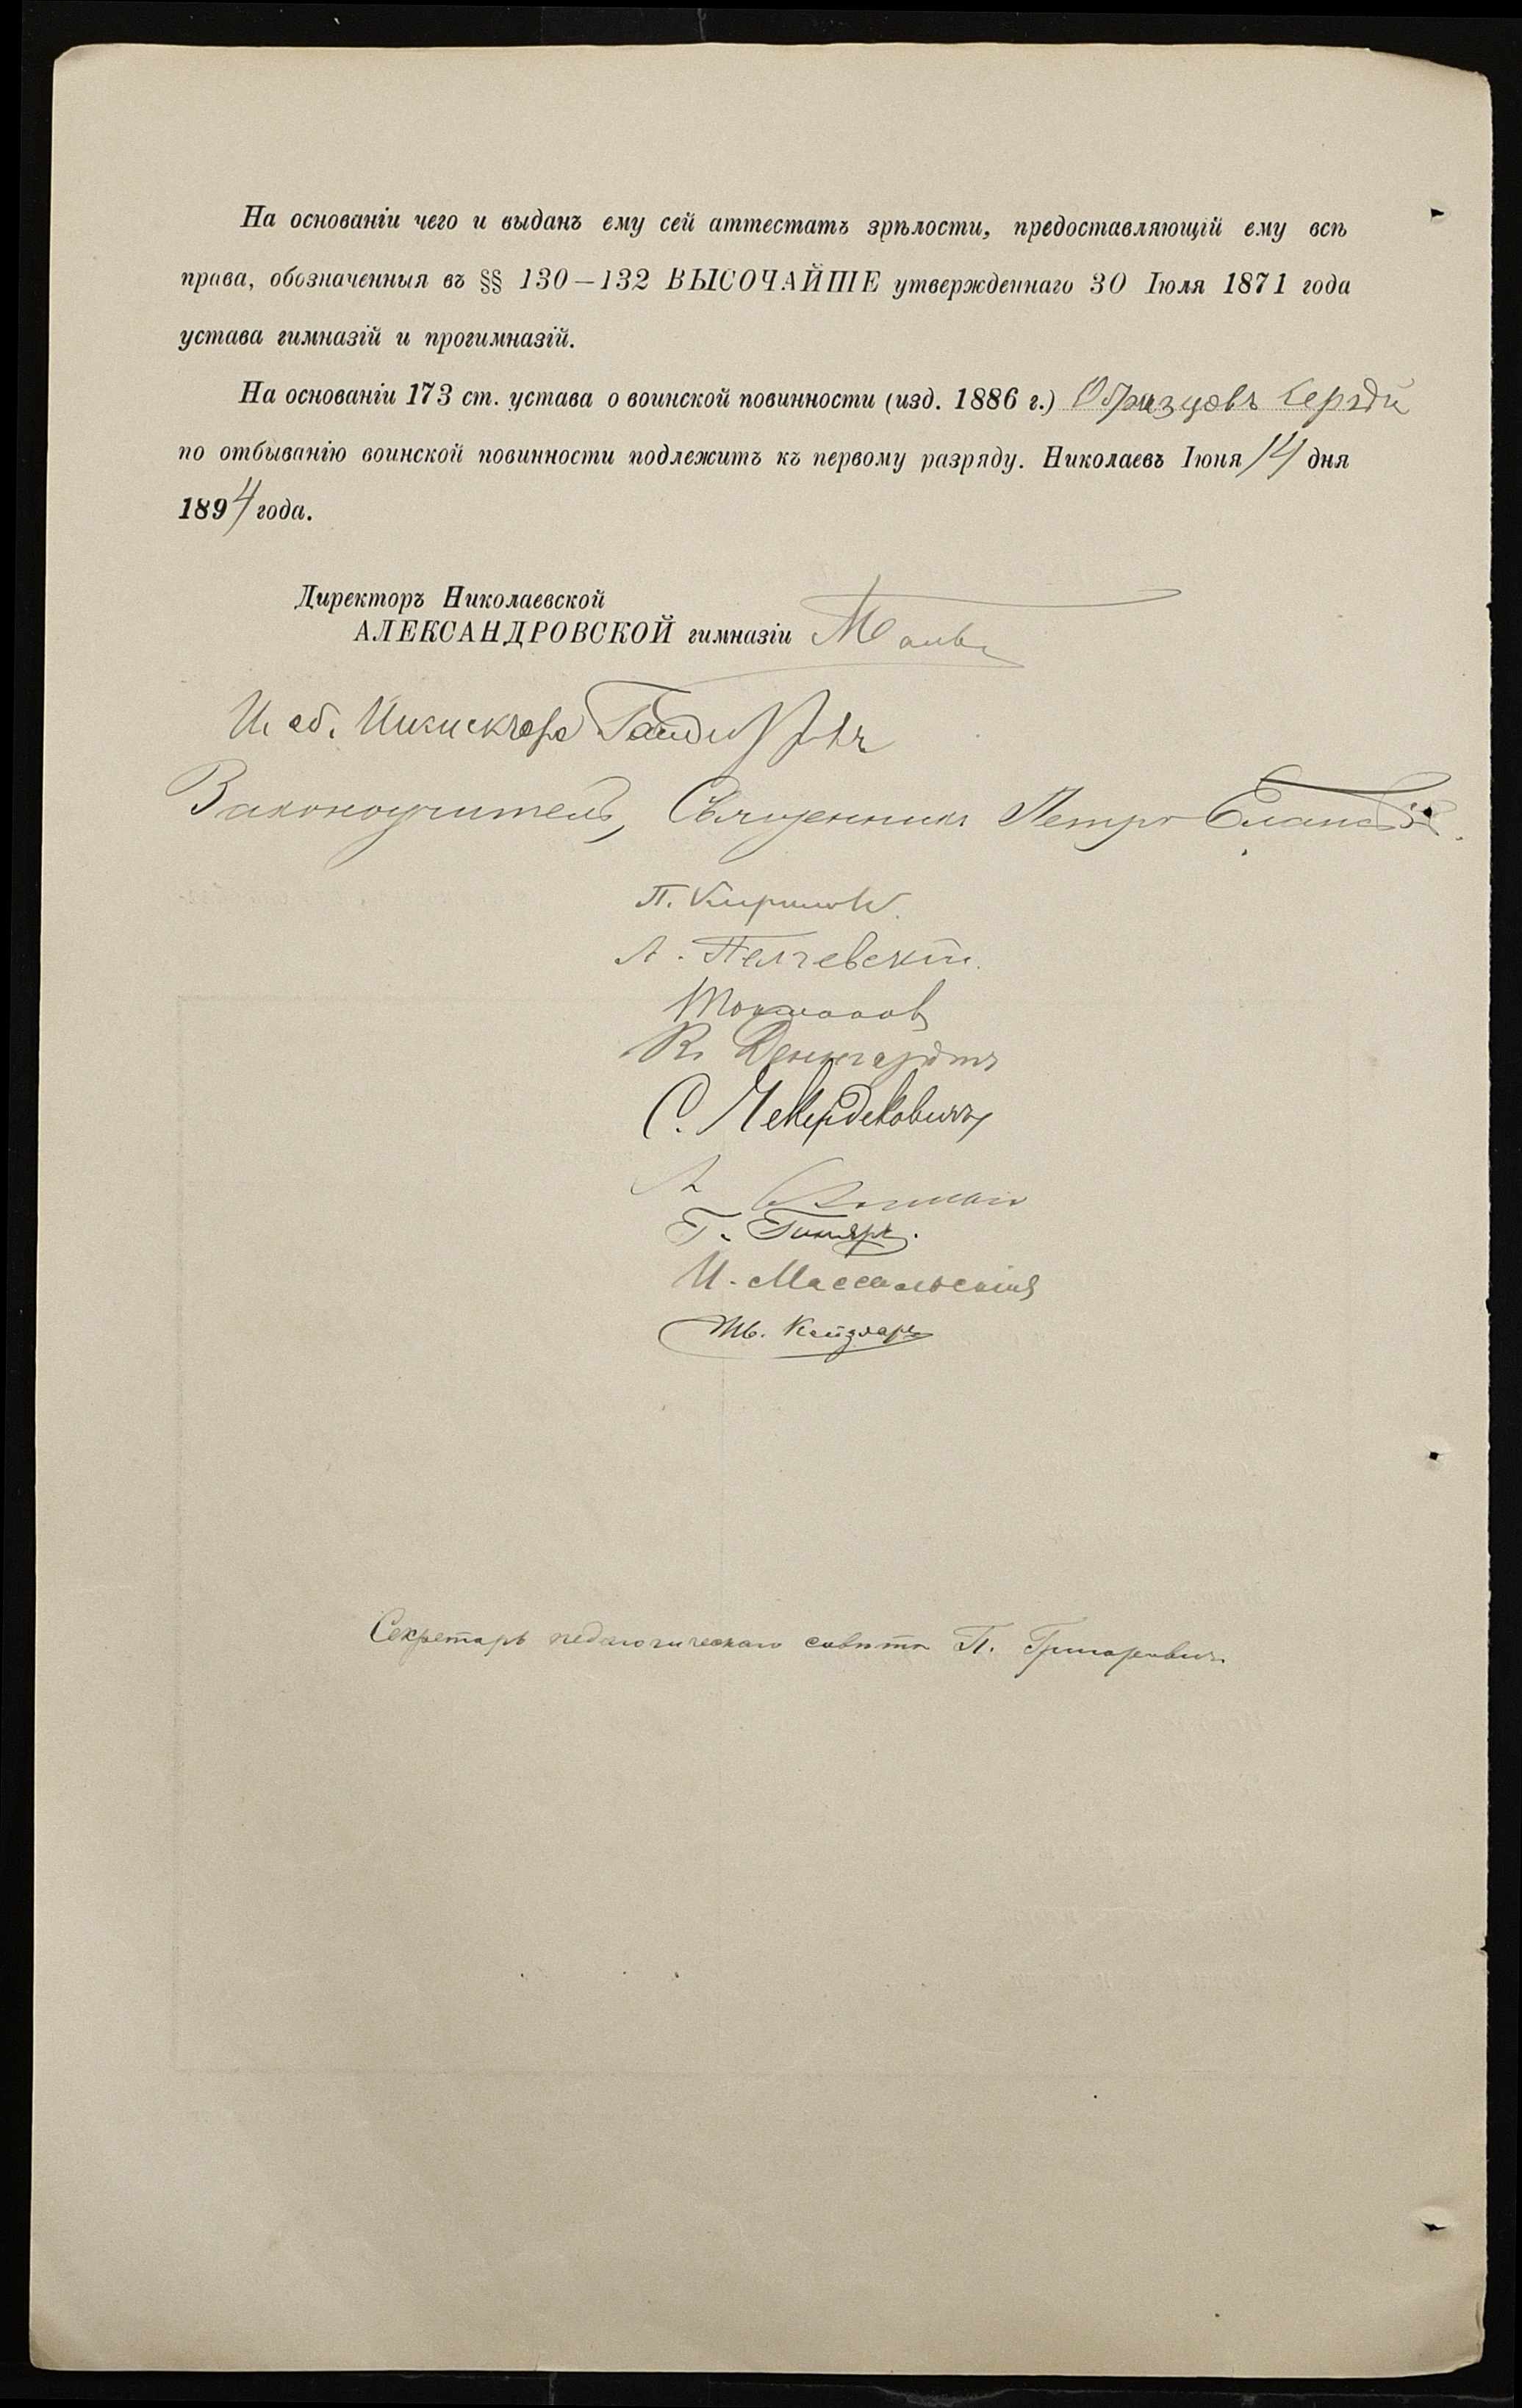 На основаніи чего и выданъ ему сей аттестатъ зрѣлости, предоставляющій ему всѣ
права, обозначенныя въ §§ 130—132 ВЫСОЧАЙШЕ утвержденнаго 30 Іюля 1871 года
устава гимназій и прогимназій.
На основаніи 173 ст. устава о воинской повинности (изд. 1886 г.) Образцовъ Сергѣй
по отбыванію воинской повинности подлежитъ къ первому разряду. Николаевъ Іюня 14 дня
1894 года.
Директоръ Николаевской
АЛЕКСАНДРОВСКОЙ гимназіи
И. об. Инспектора
Законоучитель, Священникъ Петръ
П. Кириловъ
А. Пелчевскій.
К. Денгардтъ
С. Чекердековичъ
А.
Г.
И. Массальскій
Секретарь педагогическаго совѣта П. Григоровичъ